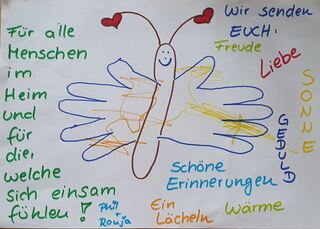 Für alle
Menschen
im
Heim
und
für
die,
welche
sich einsam
fühlen!
Phil
+
Ronja
Wir senden
EUCH:
Freude
Liebe
SONNE
GEDULD
Schöne
Erinnerungen
Ein
Lächeln
Wärme